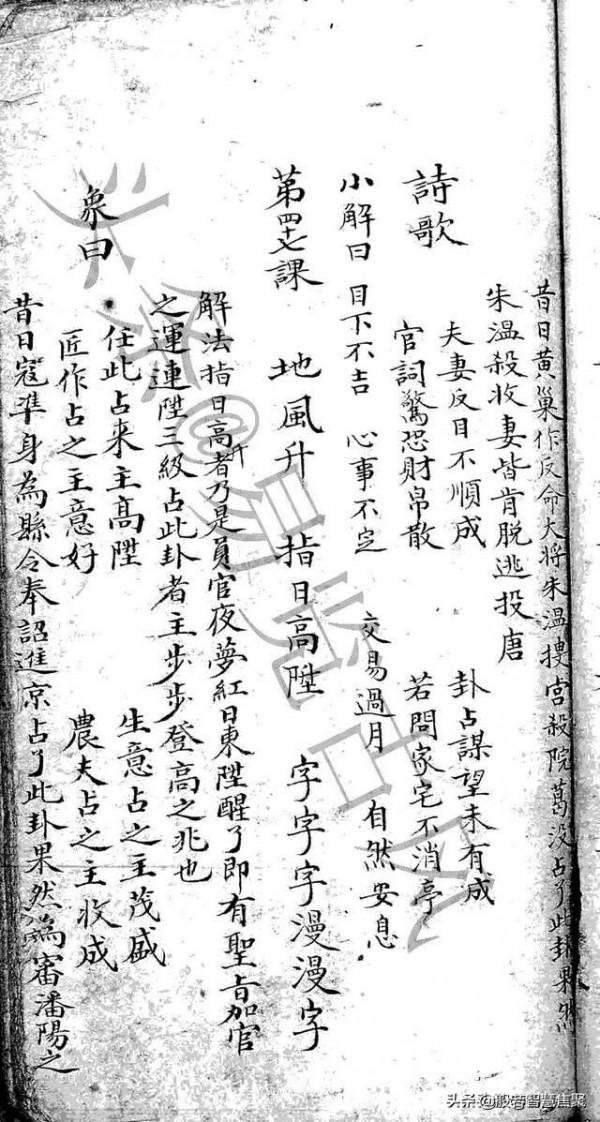 昔日黄巢作反命大将朱温搜宫殺院葛没占了此卦果然
朱温殺收妻皆肯脱逃投唐
詩歌 夫妻反目不順成 卦占謀望未有成
官詞驚恐財帛散 若問家宅不消亭
小解曰 目下不吉 心事不定 交易過月 自然安息
第四十七課 地風升 指日高陞 字字字漫漫字
解法指日高者乃是員官夜夢紅日東陞醒了即有聖旨加官
之運連陞三級占此卦者主步步登高之兆也
象曰 任此占来主髙陞 生意占之主茂盛
匠作占之主意好 農夫占之主收成
昔日寇準身為縣令奉詔進京占了此卦果然 審潘陽之
头条@易党古风
头条@般若智慧焦聚